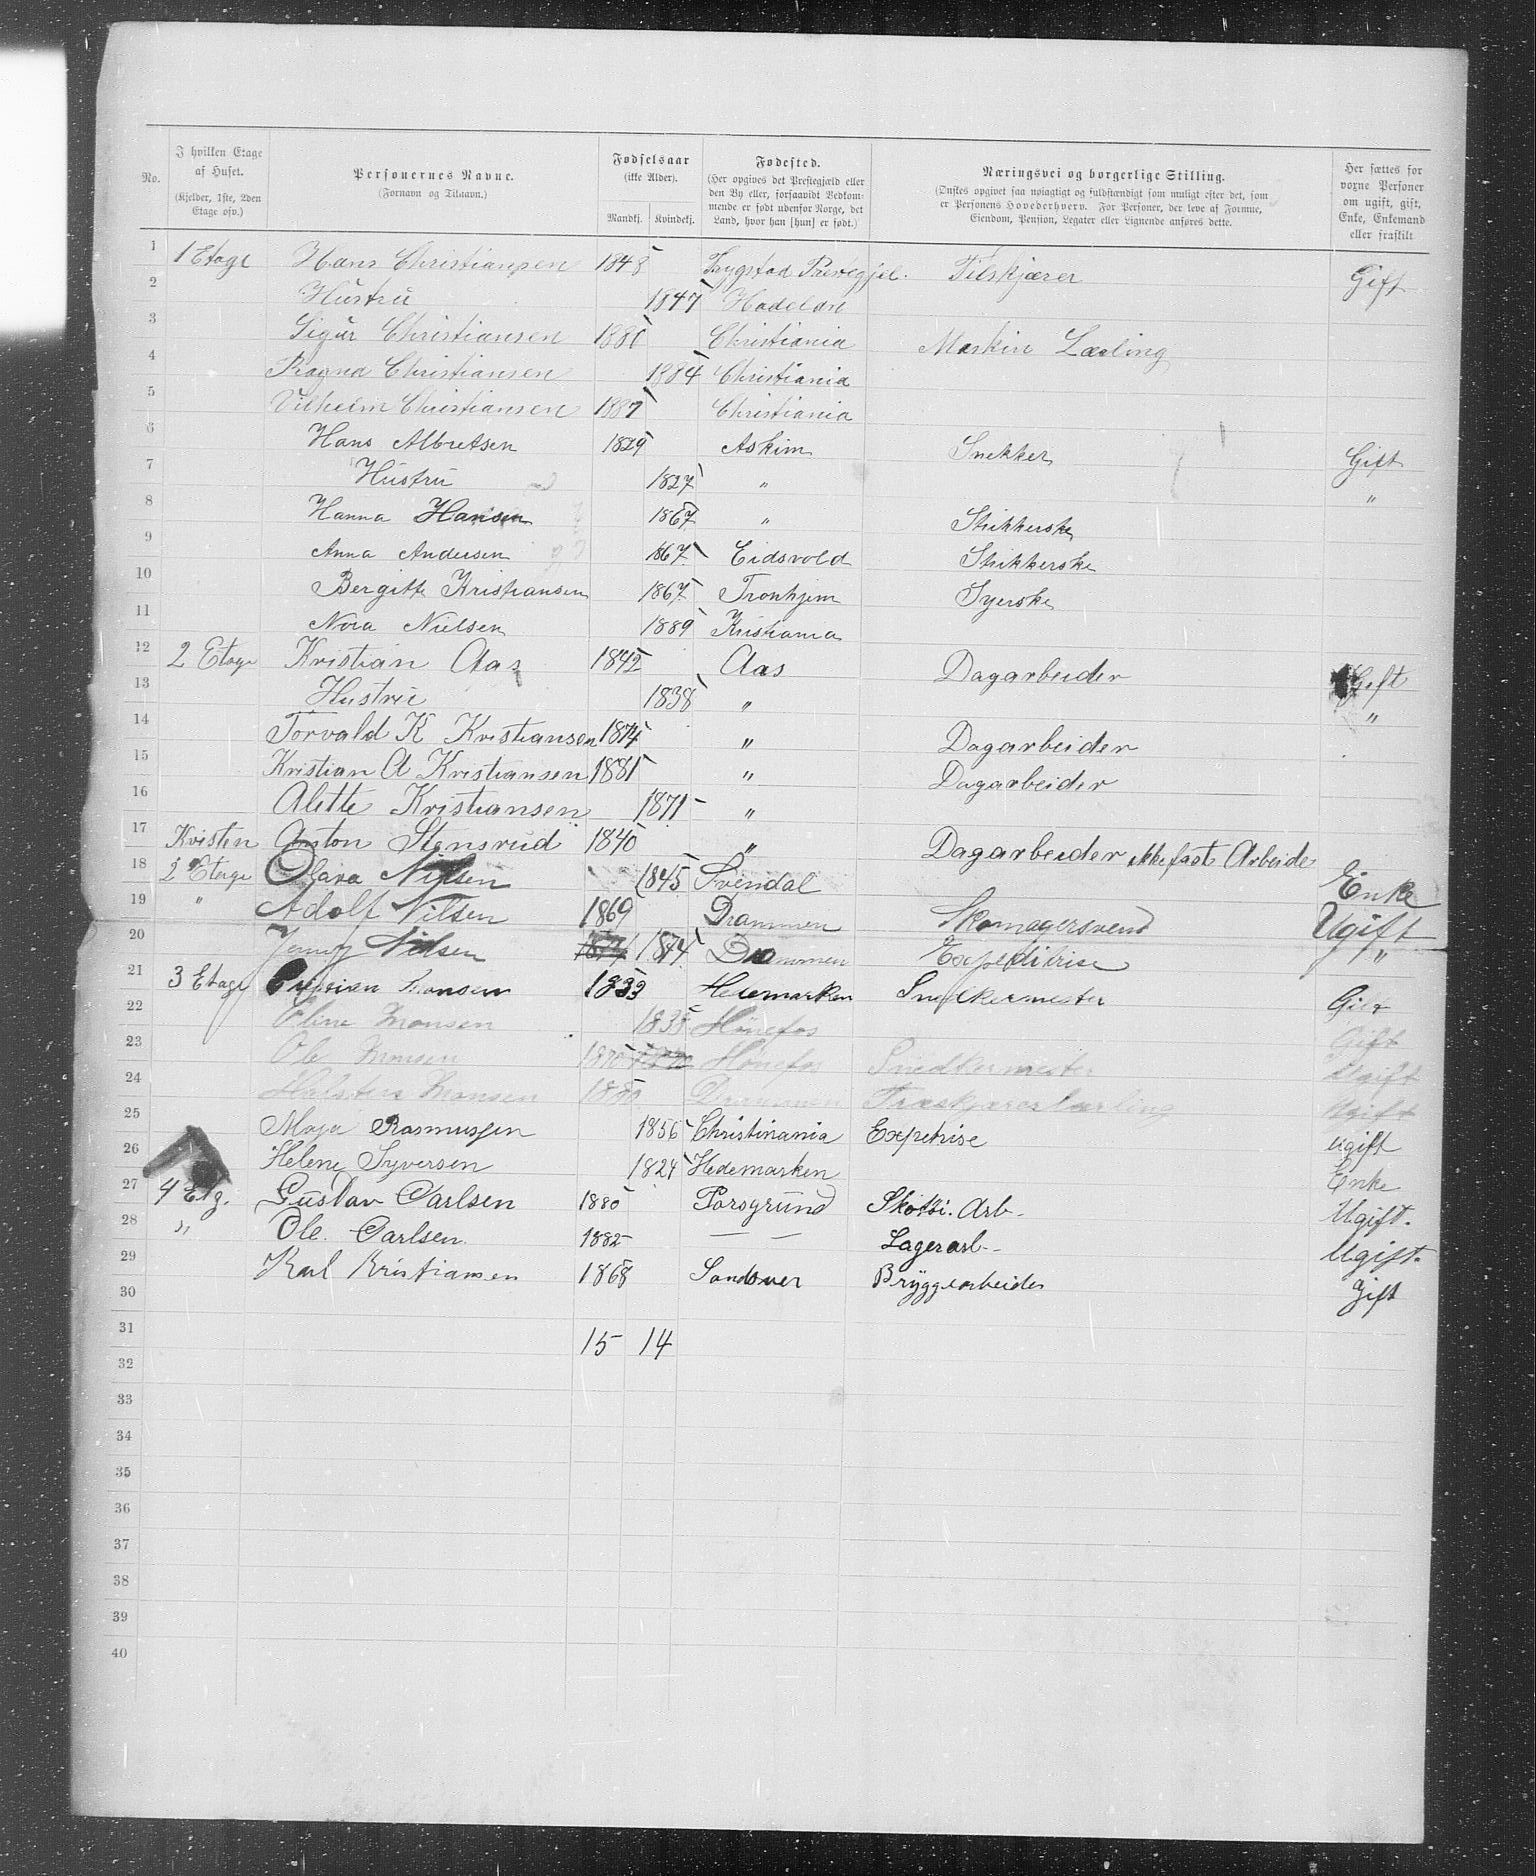 No.
I hvilken Etage af Huset.
(Kjelder, 1ste, 2den Etage osv.)
Personernes Navne.
(Fornavn og Tilnavn.)
Fødselsaar
(ikke Alder).
Mandkj. Kvindekj.
Fødested.
(Her opgives det Prestegjæld eller den By eller, forsaavidt Vedkommende er født udenfor Norge, det Land, hvor han [hun] er født.)
Næringsvei og borgerlige Stilling.
(Ønskes opgivet saa nøiagtigt og fuldstændigt som muligt efter det, som er Personens Hovederhverv. For Personer, der leve af Formue, Eiendom, Pension, Legater eller Lignende anføres dette.
Her sættes for voxne Personer om ugift, gift, Enke, Enkemand eller fraskilt
1 1 Etage Hans Christiansen 1848 Trygstad Prestegjel. Filskjærer Gift
2 Hustru 1847 Hadeland
3 Sigur Christiansen 1880 Christiania Maskin Lærling
4 Ragna Christiansen 1884 Christiania
5 Vilhelm Christiansen 1887 Christiania
6 Hans Albretsen 1829 Askim Snekker Gift
7 Hustru 1827 " "
8 Hanna Hansen 1867 " Strikkerske
9 Anna Andersen 1867 Eidsvold Strikkerske
10 Bergitte Kristiansen 1867 Tronhjem Syerske
11 Nora Nielsen 1889 Kristiania
12 2 Etage Kristian Aas 1842 Aas Dagarbeider Gift
13 Hustru 1838 " "
14 Torvald K Kristiansen 1874 " Dagarbeider
15 Kristian A Kristiansen 1881 " Dagarbeider
16 Alette Kristiansen 1871 "
17 Kvisten Anton Stensrud 1840 " Dagarbeider ikke fast Arbeide
18 2 Etage Clara Nilsen 1845 Svendal Enke
19 " Adolf Nilsen 1869 Drammen Skomagersvend Ugift
20 Jenny Nilsen 1874 Drammen Expeditrise "
21 3 Etage 1833 Hedemarken Snedkermester Gift
22 Oline Monsen 1835 Hønefos Gift
23 Ole Monsen 1870 Hønefos Snedkermester Ugift
24 Monsen 1880 Drammen Træskjærerlærling Ugift
25 Maja Rasmussen 1856 Christinania Expetrise ugift
26 Helene Syversen 1824 Hedemarken Enke
27 4 Etg. Gustav Carlsen 1880 Porsgrund Skotøi. Arb. Ugift.
28 " Ole. Carlsen 1882 — — Lagerarb. Ugift.
29 Karl Kristiansen 1868 Sandsver Bryggearbeider Gift
30
31 15 14
32
33
34
35
36
37
38
39
40